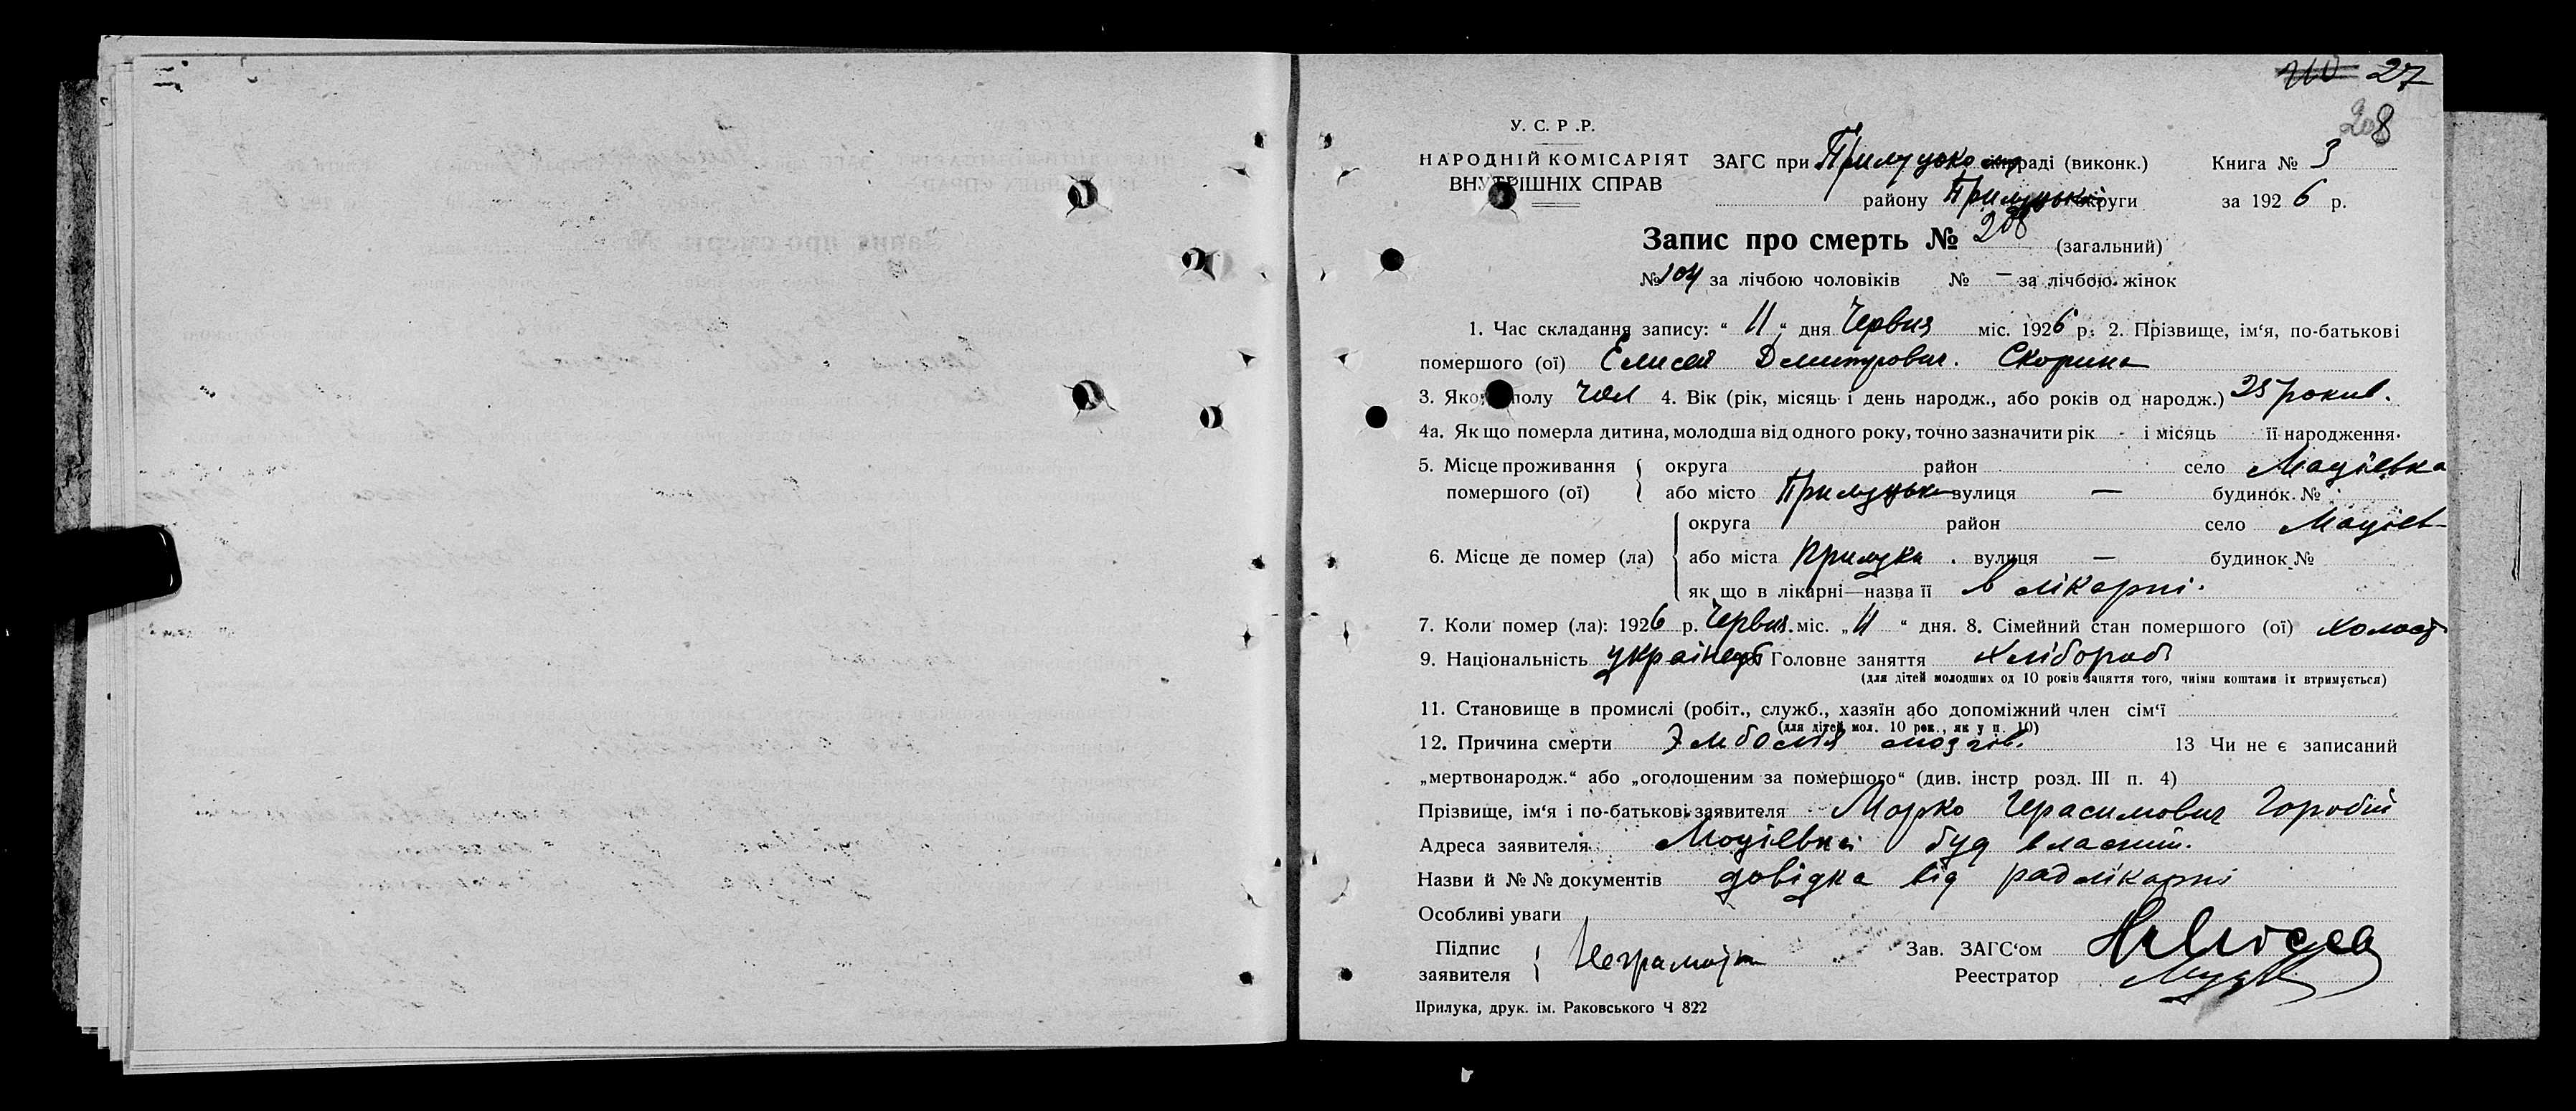 27
208
У. С. Р. Р.
НАРОДНІЙ КОМІСАРІЯТ
ВНУТРІШНІХ СПРАВ
ЗАГС при Прилуцько раді (виконк.) Книга № 3
району Прилуцької округи за 1926 р.
Запис про смерть № 208 (загальний)
№ 104 за лічбою чоловіків № — за лічбою жінок
1. Час складання запису: “ 11 “ дня Червня міс. 1926 р. 2. Прізвище, ім‘я, по-батькові
помершого (ої) Елисей Дмитрович. Скорина
3. Якого полу Чол 4. Вік (рік, місяць і день народж., або років од народж.) 25 років.
4а. Як що померла дитина, молодша від одного року, точно зазначити рік - і місяць її народження.
5. Місце проживання помершого (ої) { округа район село Мацієвка
або місто Прилуцько вулиця — будинок №
6. Місце де помер (ла) { округа район село Мацієв
або міста Прилука . вулиця — будинок №
як що в лікарні—назва її в лікарні.
7. Коли помер (ла): 1926 р. Червня. міс. „ 11 “ дня. 8. Сімейний стан помершого (ої) холост
9. Національність українець Головне заняття хлібороб
(для дітей молодших од 10 років заняття того, чиїми коштами їх втримується)
11. Становище в промислі (робіт., служб., хазяїн або допоміжний член сім‘ї
(для дітей мол. 10 рок., як у п. 10)
12. Причина смерти Эмболія мозгів. 13 Чи не є записаний
„мертвонародж.“ або „оголошеним за помершого“ (див. інстр розд. III п. 4)
Прізвище, ім‘я і по-батькові заявителя Марко Герасимович Горобій
Адреса заявителя Мацієвка буд власний.
Назви й №№ документів довідка від радлікарні
Особливі уваги
Підпис заявителя { Неграмотн
Зав. ЗАГС‘ом
Реестратор
Прилука, друк. ім. Раковського Ч 822